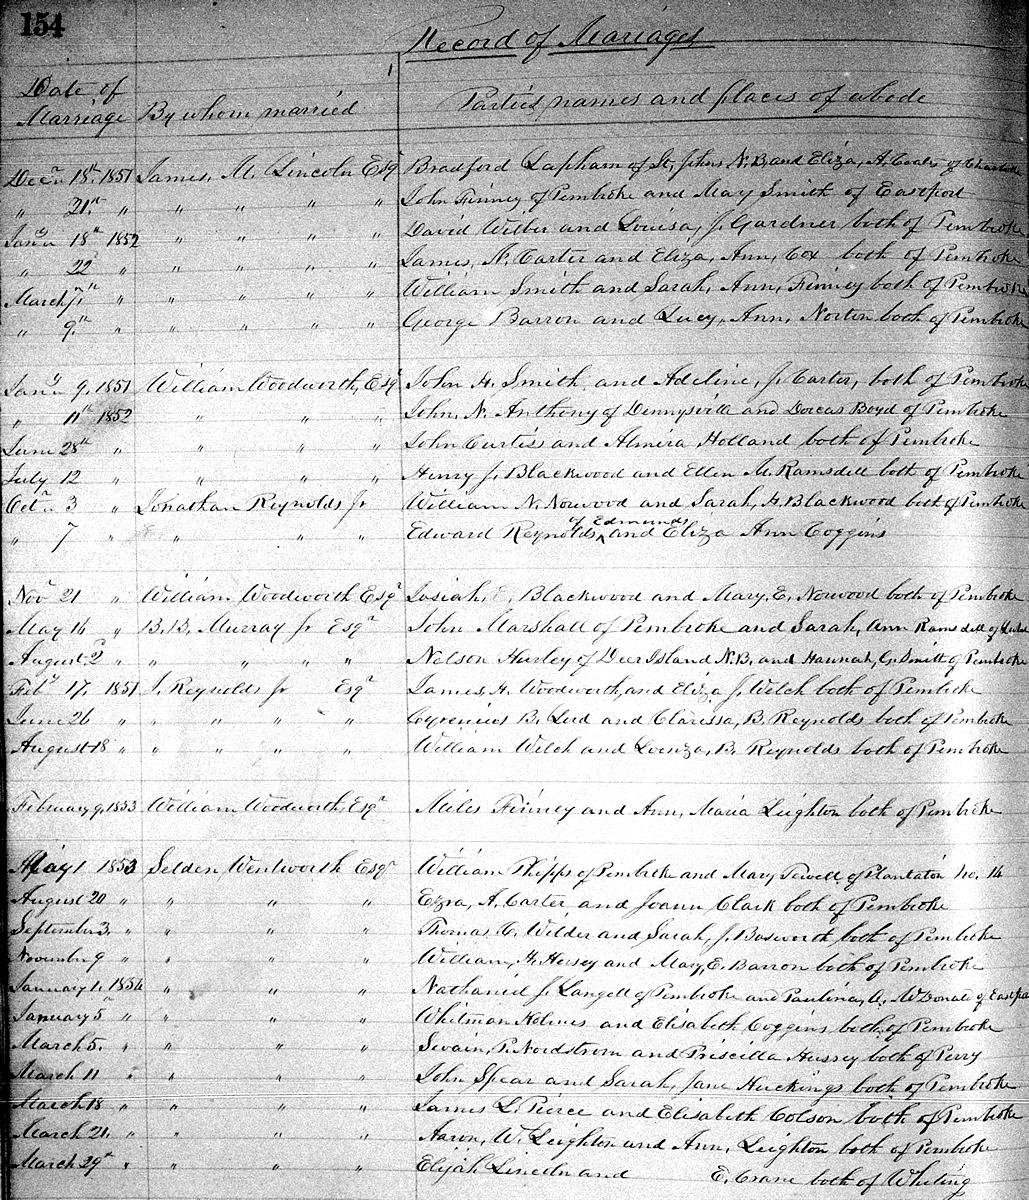 154
Record of Mariages
Date of
Marriage By whom married Parties names and places of abode
Decr 18th 1851 James, M. Lincoln Esqr Bradford Lapham of St. Johns N.B and Eliza, A. of
" 21st " " " " " John Finney of Pembroke and May Smith of Eastport
Jany 18th 1852 " " " " David Wilber and Louisa, J. Gardner both of Pembroke
" 22 " " " " " James, N. Carter and Eliza, Ann, Cox both of Pembroke
March " " " " " William Smith and Sarah, Ann, Finney both of Pembroke
" 9th " " " " " George Barron and Lucy, Ann, Norton both of Pembroke
Jany 9, 1851 William Woodworth, Esqr John H. Smith and Adeline, J. Carter, both of Pembroke
" 11th 1852 " " " John, N. Anthony of Dennysville and Dorcas Boyd of Pembroke
June 28th " " " " John Curtiss and Almira Holland both of Pembroke
July 12 " " " " Henry J. Blackwood and Ellen M. Ramsdell both of Pembroke
Octr 3 " Jonathan Reynolds Jr William N. Norwood and Sarah, H. Blackwood both of Pembroke
" 7 " " " " " Edward Reynolds ^ of Edmunds and Eliza Ann Coggins
Novr 21 " William Woodworth Esqr Josiah, E. Blackwood and Mary, E. Norwood both of Pembroke
May 16 " B.B. Murray Jr Esqr John Marshall of Pembroke and Sarah, Ann Ramsdell of Lubec
August 2 " " " " " Nelson Hurley of Deer Island N.B. and Hannah, G. Smith of Pembroke
Feby 17, 1851 J. Reynolds Jr Esqr James, H. Woodworth, and Eliza J. Welch both of Pembroke
June 26 " " " " " Cyrenius B. and Clarissa, B. Reynolds both of Pembroke
August 18 " " " " " William Welch and B. Reynolds both of Pembroke
February 9, 1853 William Woodworth, Esqr Miles Finney and Ann, Maria Leighton both of Pembroke
May 1 1853 Selden Wentworth Esqr William Phipps of Pembroke and Mary Sewell of Plantation No. 14
August 20 " " " " Ezra, A. Carter and Joann Clark both of Pembroke
September 3, " " " " Thomas C. Wilder and Sarah, J. Bosworth both of Pembroke
November 9 " " " " William, H. Hersey and May, E. Barron both of Pembroke
January 1, 1854 " " " Nathaniel J. Langell of Pembroke and Paulina, A. McDonald of Eastport
January 5 " " " " Whitman Holmes and Elisabeth Coggins both of Pembroke
March 5. " " " " Swain, P. Nordstrom and Priscilla Hussey both of Perry
March 11 " " " " John Spear and Sarah, Jane Huckings both of Pembroke
March 18 " " " " James L. Pierce and Elisabeth Colson both of Pembroke
March 21, " " " " Aaron, W. Leighton and Ann, Leighton both of Pembroke
March 29th " " " " Elijah Lincoln and E. Crane both of Whiting